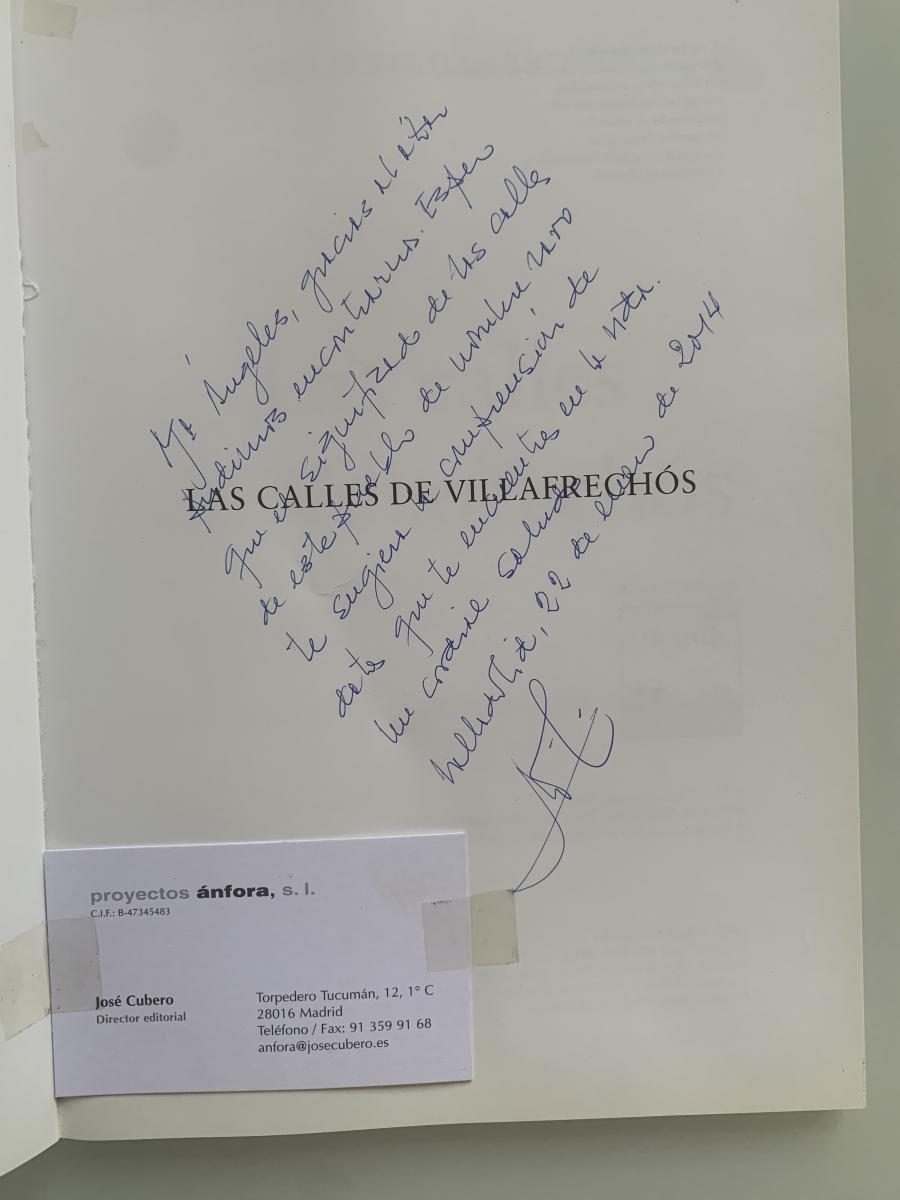 Mª Ángeles, gracias al atún
pudimos encontrarnos. Espero
que el significado de las calles
de este pueblo de nombre raro
te sugiera la comprensión de
datos que te encuentres en la ruta.
Un cordial saludo
Valladolid, 22 de enero de 2014
LAS CALLES DE VILLAFRECHÓS
proyectos ánfora, s. l.
C.I.F.: B-47345483
José Cubero
Director editorial
Torpedero Tucumán, 12, 1° C
28016 Madrid
Teléfono / Fax: 91 359 91 68
anfora@josecubero.es